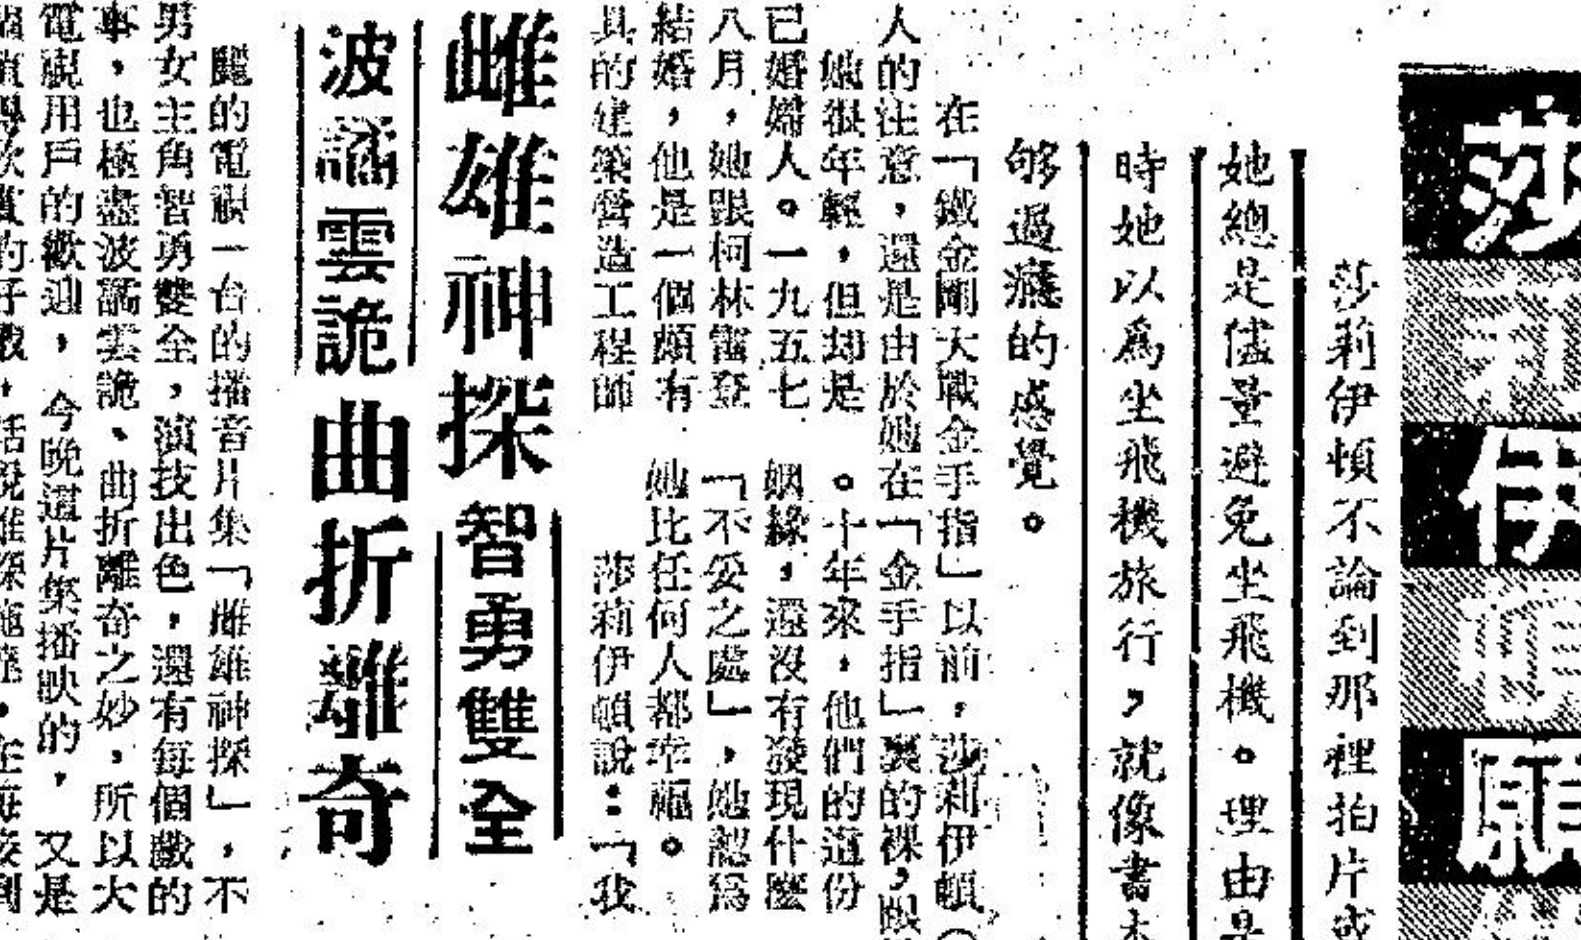 莎莉伊頓
莎莉伊頓不論到那裡拍片或
她總是儘量避免坐飛機。理由是
時她以爲坐飛機旅行，就像書本
够過癮的感覺。
在「鐵金剛大戰金手指」以前，莎莉伊頓（
人的注意，還是由於她在「金手指」裏的裸，眼
她很年輕，但却是
已婚婦人。一九五七
八月，她跟柯林雷登
結婚，他是一個頗有
具的建築營造工程師
。十年來，他們的這份
姻緣，還沒有發現什麼
「不妥之處」，她認爲
她比任何人都幸福。
莎莉伊頓說：「我
雌雄神探智勇雙全
波譎雲詭曲折離奇
麗的電視一台的播音片集「雌雄神探」，不
男女主角智勇雙全，演技出色，還有每個戲的
事，也極盡波譎雲詭、曲折離奇之妙，所以大
電視用戶的歡迎，今晚這片集播映的，又是